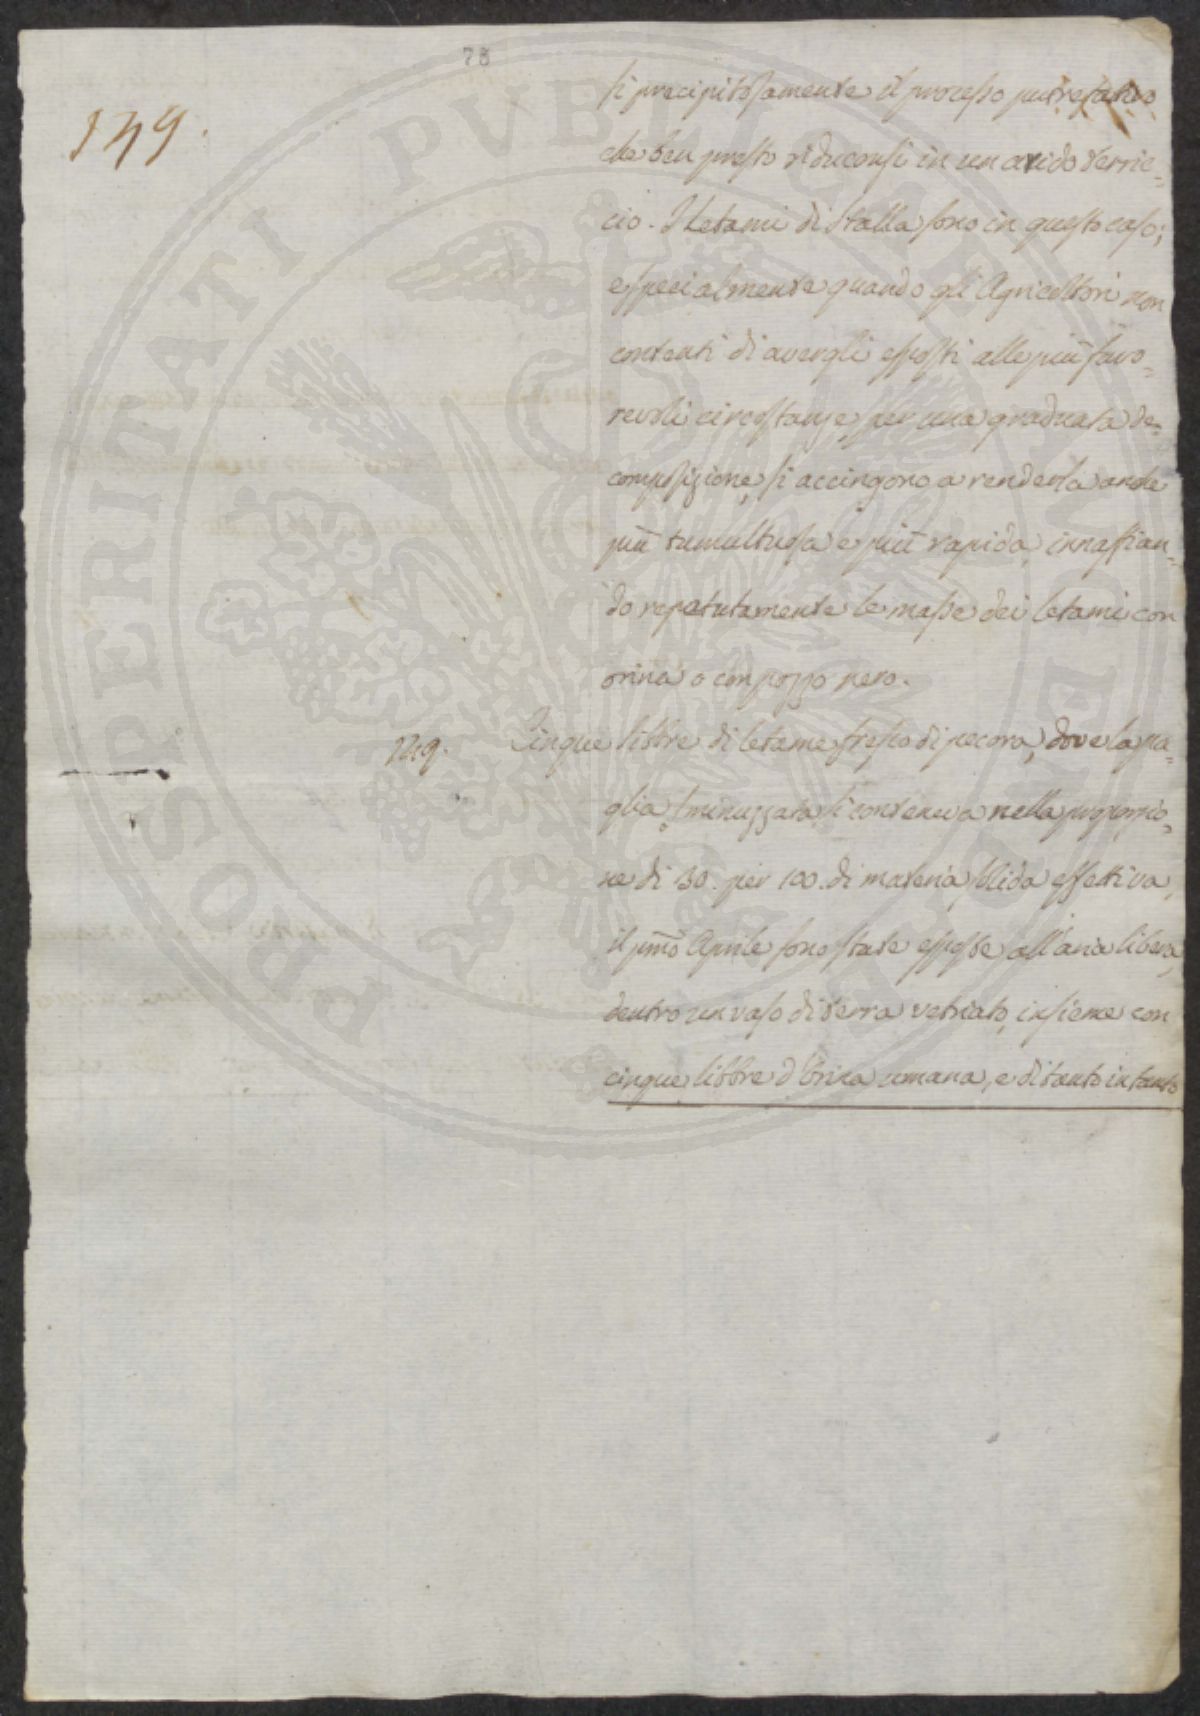 78
149.
si precipitosamente il processo putrefattivo
che ben presto riduconsi in un arido terric=
cio. I Letami di stalla sono in questo caso;
especialmente quando gli Agricoltori non
contenti di avergli esposti alle più favo=
revoli circostanze per una graduata de=
composizione, si accingono a renderla anche
più tumultuosa e più rapida, innaffian=
do repetutamente le masse dei letami con
orina o con pozzo nero.
Cinque libbre di letame fresco di pecora, dove la pa=
glia sminuzzata si conteneva nella proporzio=
ne di 30. per 100. di materia solida effettiva,
il pmo Aprile sono state esposte all'aria libera,
dentro un vaso di terra vetriato, insieme con
cinque libbre d'Orina umana, e di tanto in tanto
PROSPERITATI PVBLICAE AVGENDAE